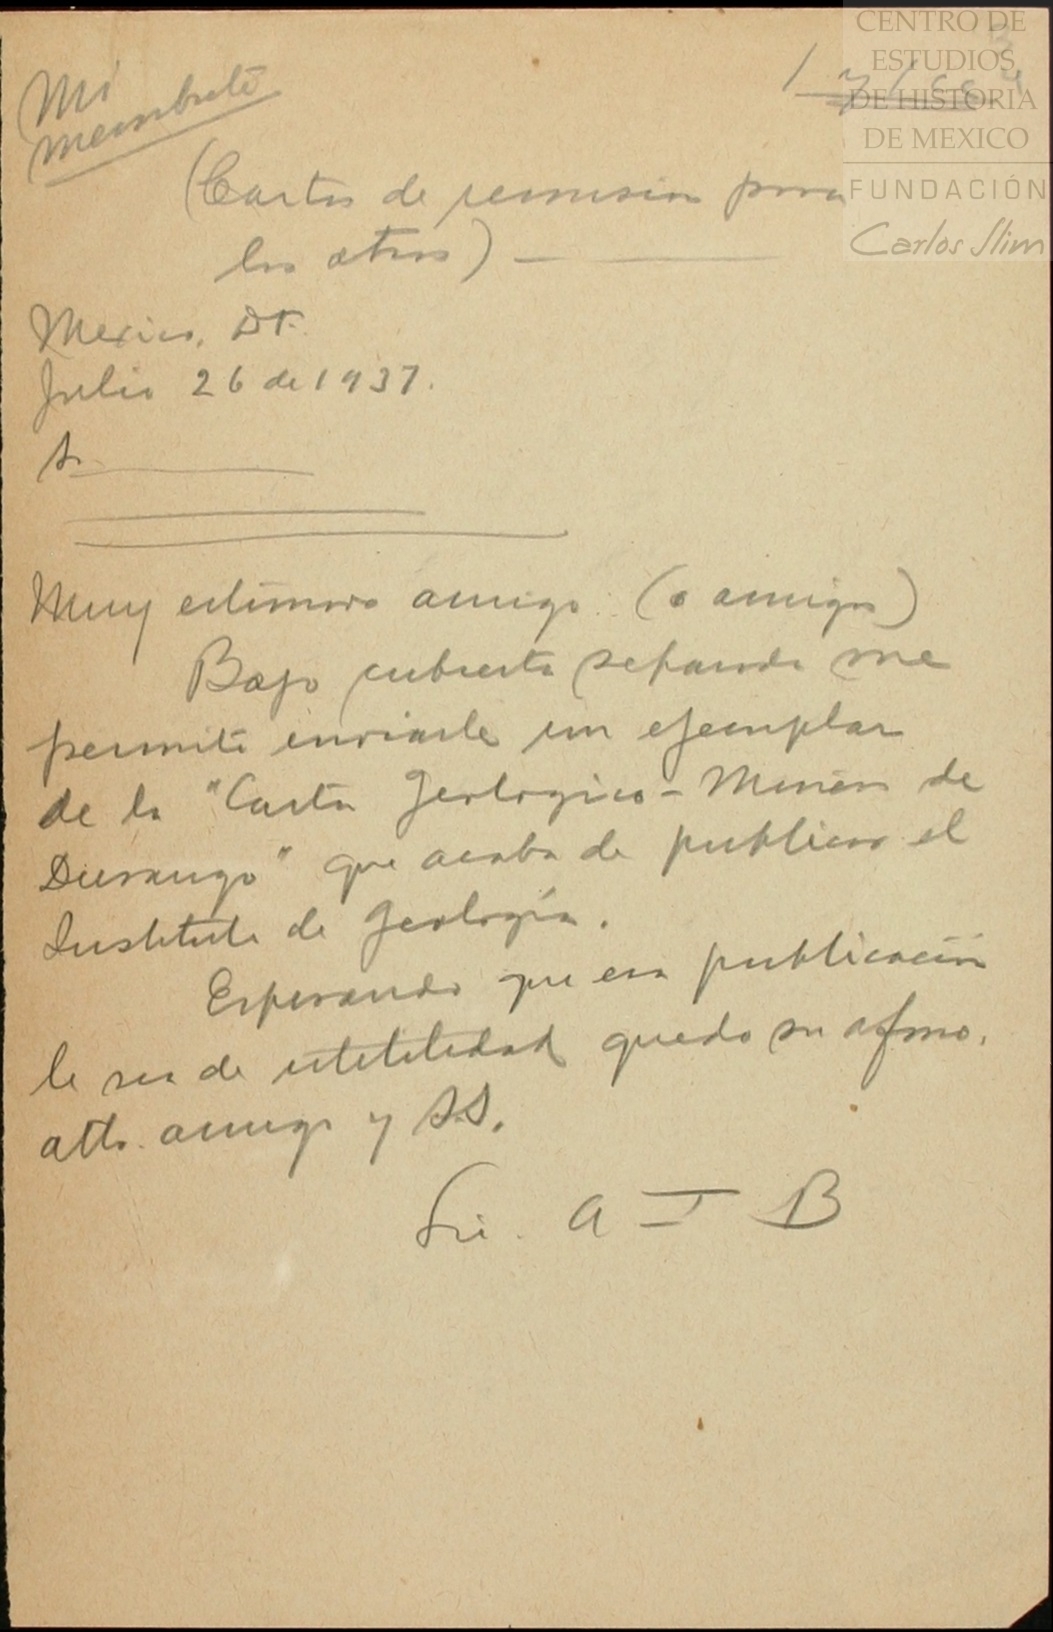 Mi
membrete
CENTRO DE
ESTUDIOS
DE HISTORIA
DE MEXICO
FUNDACIÓN
Carlos Slim
(Cartas de remision para
los otros)
Mexico, D.F.
Julio 26 de 1937.
Sr.
Muy estimado amigo: (o amigos)
Bajo cubierta separada me
permito enviarle un ejemplar
de la "Carta Geologico-Minera de
Durango" que acaba de publicar el
Instituto de Geología.
Esperando que esa publicación
le sea de utilidad quedo su afmo.
atto. amigo y S.S.